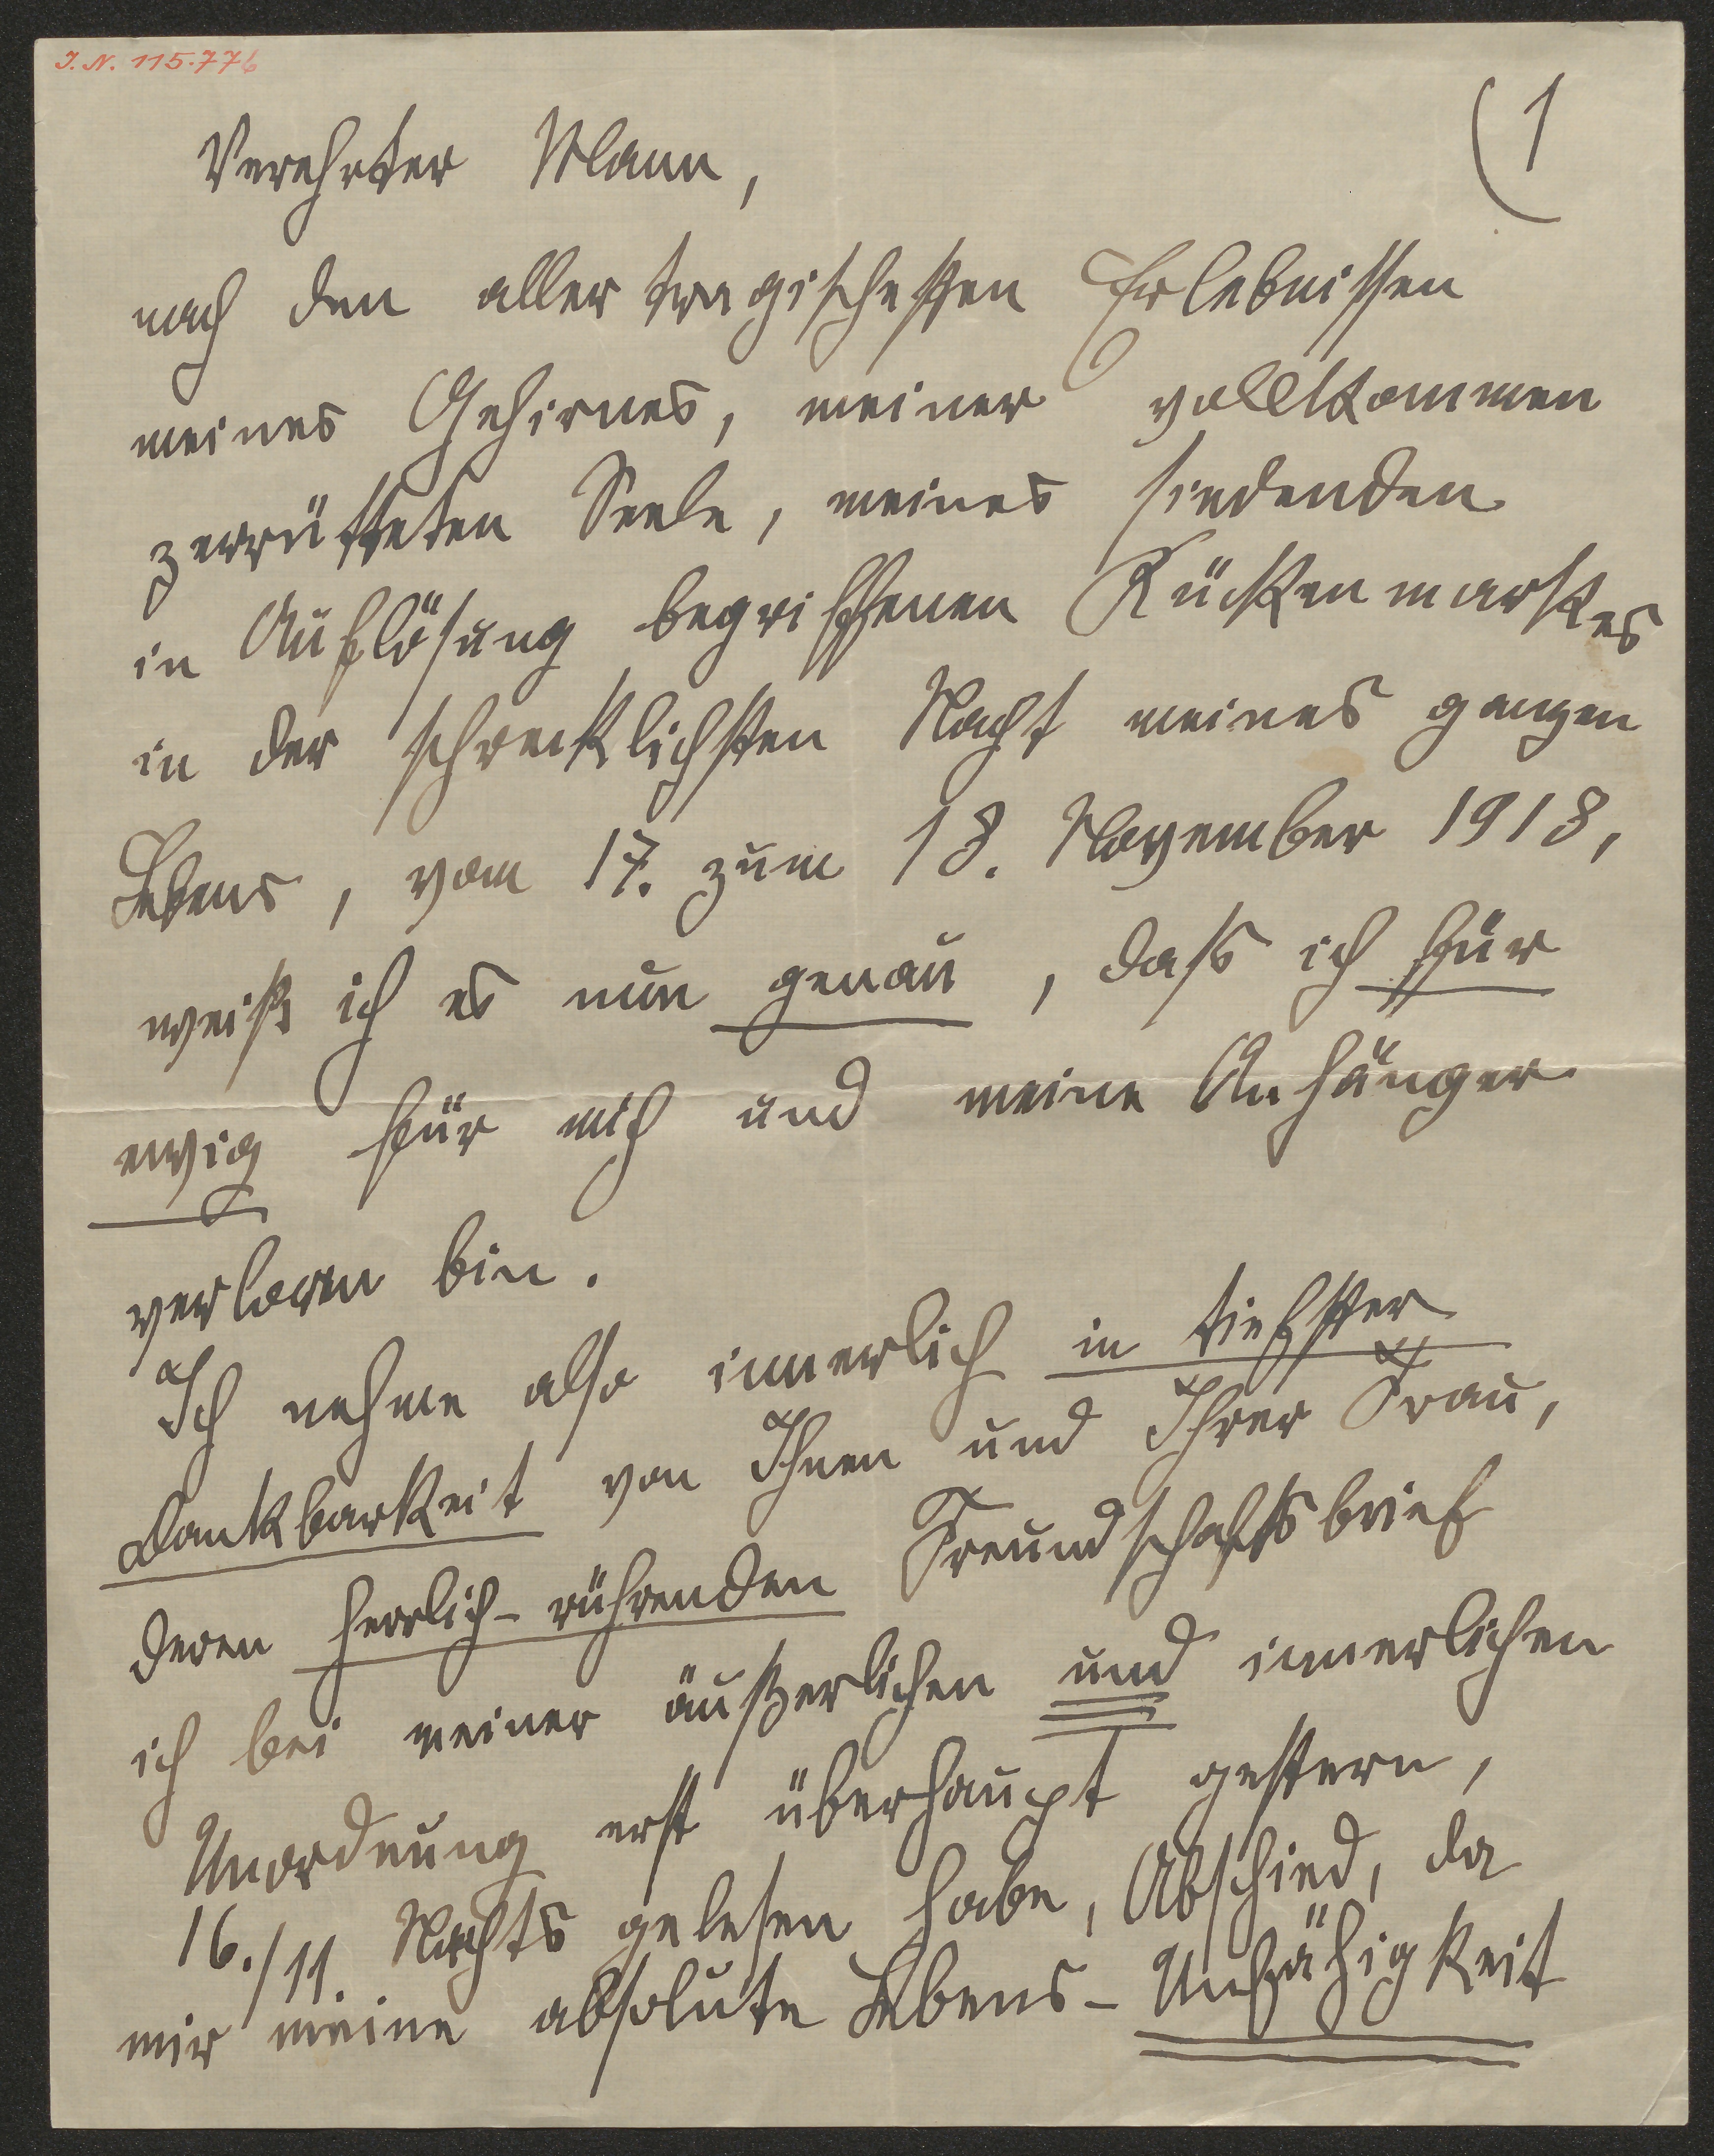 I. N. 115.776
(1
Verehrter Mann,
nach den allertragischesten Erlebnissen
meines Gehirnes, meiner vollkommen
zerrütteten Seele, meines siedenden
in Auflösung begriffenen Rückenmarkes
in der schrecklichsten Nacht meines ganzen
Lebens, vom 17. zum 18. November 1918,
weiß ich es nun genau, dass ich für
ewig für mich und meine Anhänger
verloren bin.
Ich nehme also innerlich in tiefster
Dankbarkeit von Ihnen und Ihrer Frau,
deren herrlich-rührenden Freundschaftsbrief
ich bei meiner äußerlichen und innerlichen
Unordnung erst überhaupt gestern,
16./11. Nachts gelesen habe, Abschied, da
mir meine absolute Lebens-Unfähigkeit